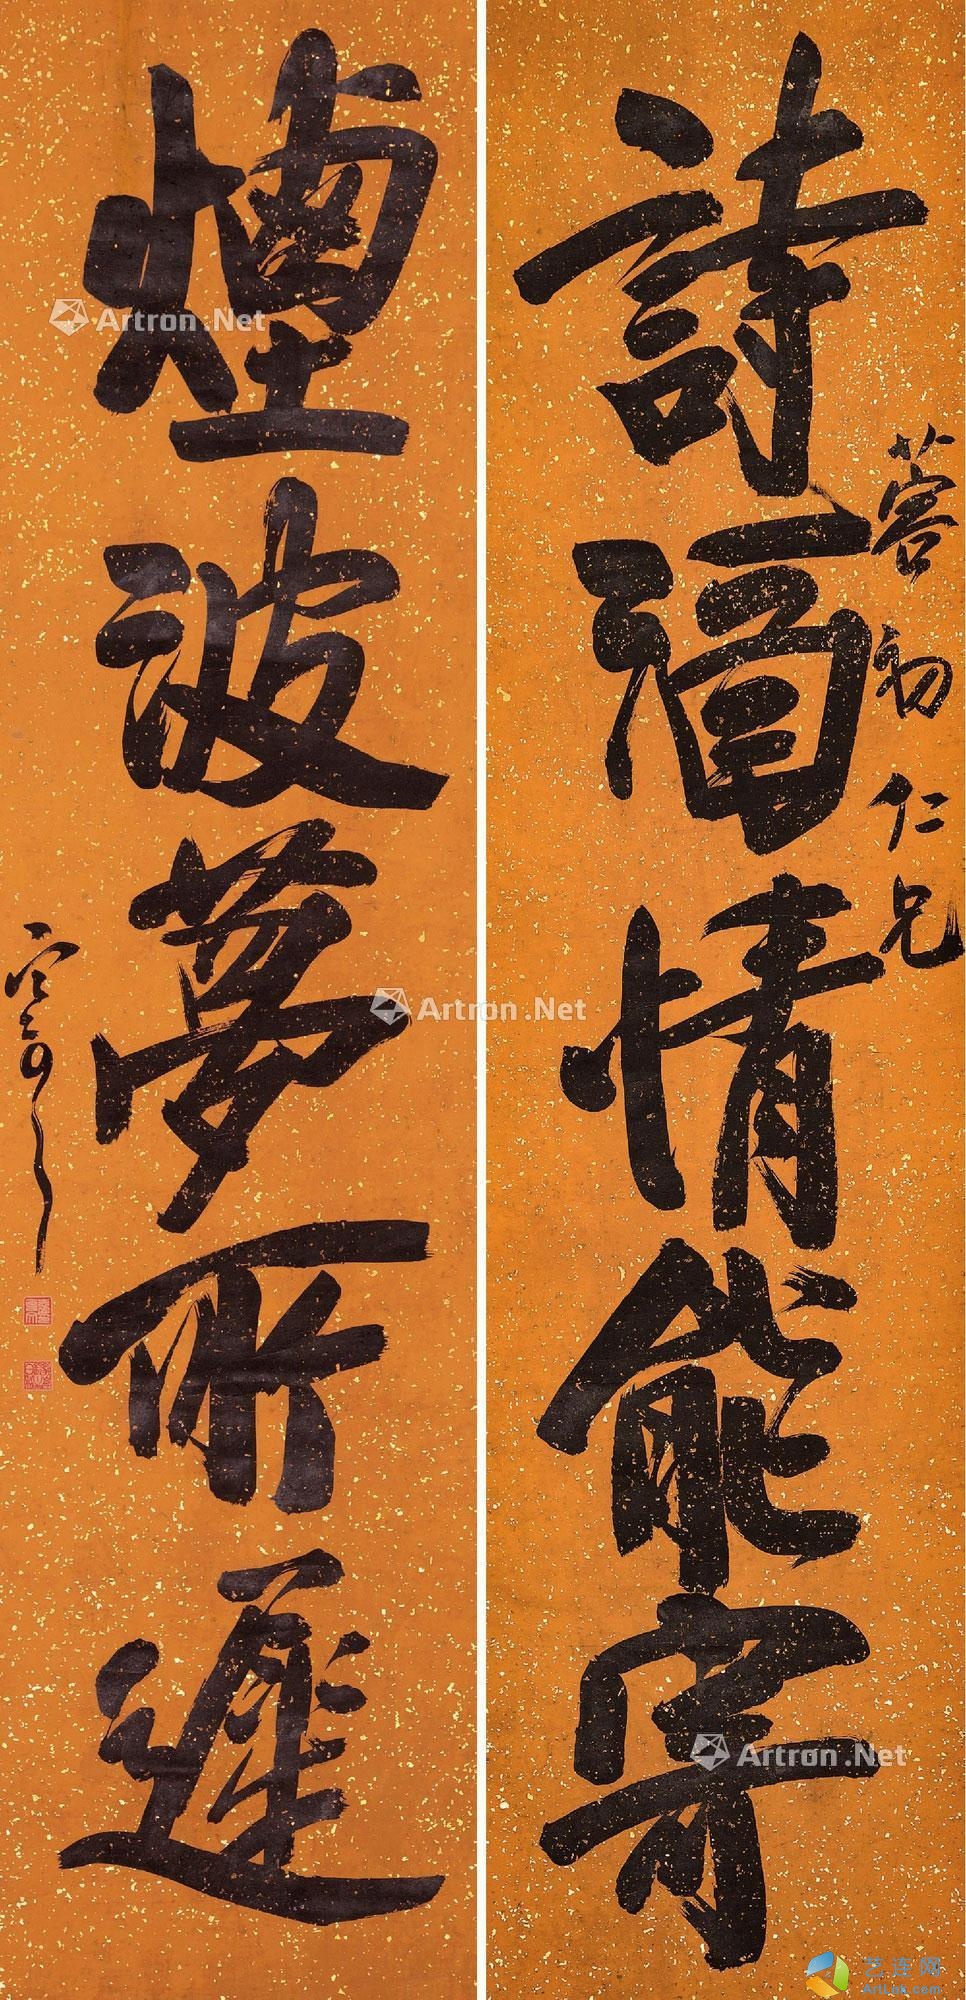 詩酒情能寄
蓉初仁兄
煙波夢所遲
Artron.Net
Artron.Net
Artron.Net
艺连网
ArtLink.com